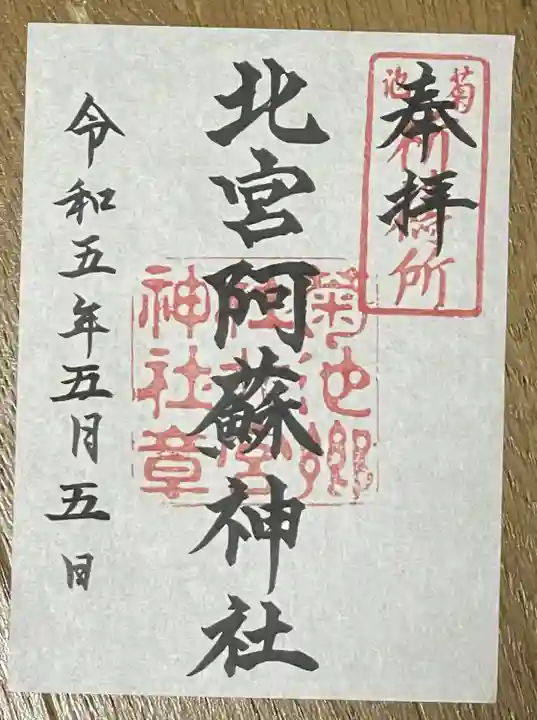 奉拝
菊池
祈祷所
北宮阿蘇神社
菊池郷
神社章
令和五年五月五日